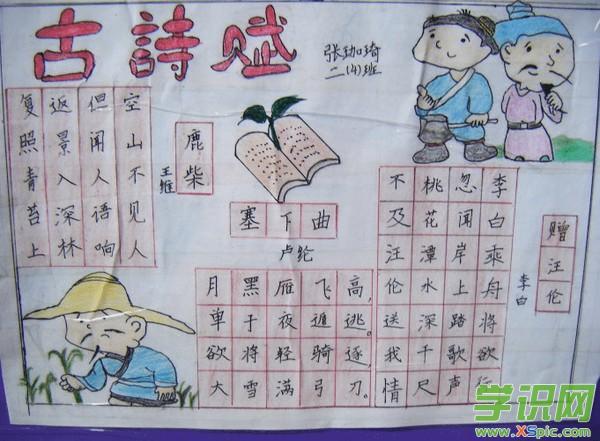 古詩赋
张珈琦
二(4)班
鹿柴
王维
空山不见人
但闻人语响
返景入深林
复照青苔上
塞下曲
卢纶
月黑雁飞高,
单于夜遁逃。
欲将轻骑逐,
大雪满弓刀。
赠汪伦
李白
李白乘舟将欲行
忽闻岸上踏歌声
桃花潭水深千尺
不及汪伦送我情
学识网
www.XSpic.com